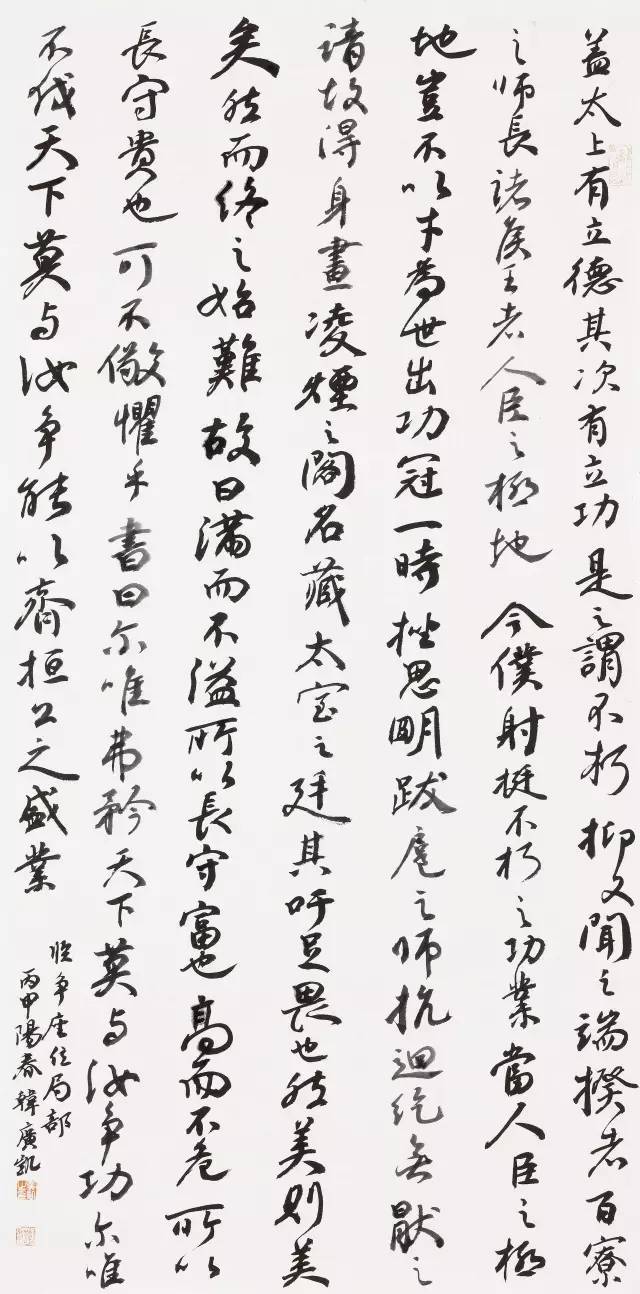 盖太上有立德其次有立功是之謂不朽抑又聞之端揆者百寮
之师長诸侯王者人臣之極地今僕射挺不朽之功業當人臣之極
地豈不以才為世出功冠一時挫思明跋扈之师抗迴纥無厭之
请故得身畫凌煙之閣名藏太室之廷其吁足畏也然美则美
矣然而终之始難故曰滿而不溢所以長守富也高而不危所以
長守貴也可不儆懼乎書曰尔唯弗矜天下莫与汝争功尔唯
不伐天下莫与汝争能以齊桓公之盛業
临争座位局部
丙申陽春韓廣凱